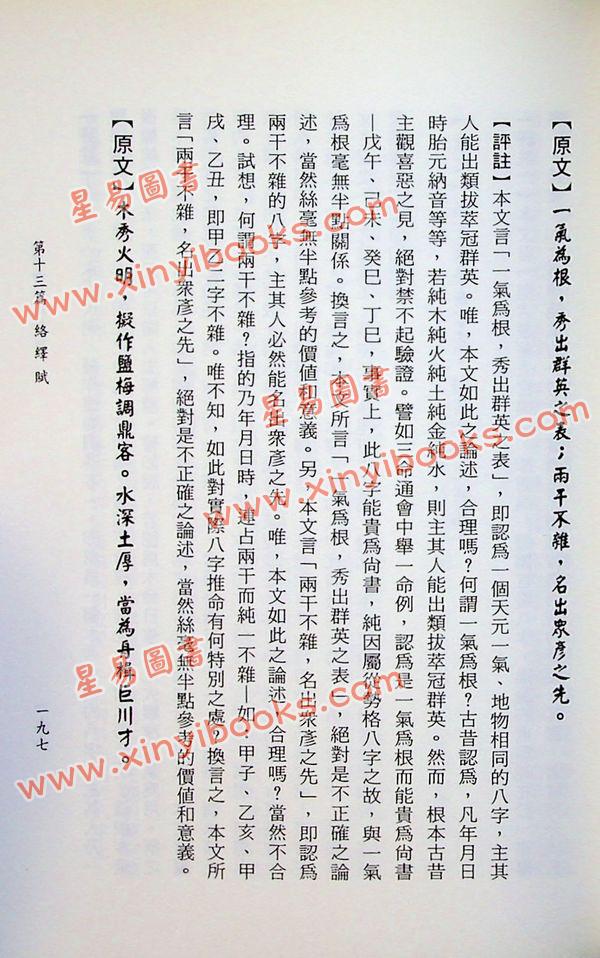 【原文】一氣為根，秀出群英之表；兩干不雜，名出眾彥之先。
【評註】本文言「一氣爲根，秀出群英之表」，即認爲一個天元一氣、地物相同的八字，主其
人能出類拔萃冠群英。唯，本文如此之論述，合理嗎？何謂一氣爲根？古昔認爲，凡年月日
時胎元納音等等，若純木純火純土純金純水，則主其人能出類拔萃冠群英。然而，根本古昔
主觀喜惡之見，絕對禁不起驗證。譬如三命通會中舉一命例，認爲是一氣爲根而能貴爲尚書
—戊午、己未、癸巳、丁巳，事實上，此八字能貴爲尚書，純因屬從勢格八字之故，與一氣
爲根毫無半點關係。換言之，本文所言「一氣爲根，秀出群英之表」，絕對是不正確之論
述，當然絲毫無半點參考的價值和意義。另，本文言「兩干不雜，名出眾彥之先」，即認爲
兩干不雜的八字，主其人必然能名出眾彥之先。唯，本文如此之論述，合理嗎？當然不合
理。試想，何謂兩干不雜？指的乃年月日時，連占兩干而純一不雜—如：甲子、乙亥、甲
戌、乙丑，即甲乙二字不雜。唯不知，如此對實際八字推命有何特別之處？換言之，本文所
言「兩干不雜，名出眾彥之先」，絕對是不正確之論述，當然絲毫無半點參考的價值和意義。
【原文】木秀火明，擬作鹽梅調鼎客。水深土厚，當為舟楫巨川才。
第十三篇 絡繹賦
一九七
星易圖書
www.xinyibooks.com
星易圖書
www.xinyibooks.com
星易圖書
www.xinyibooks.com
星易圖書
www.xinyibooks.com